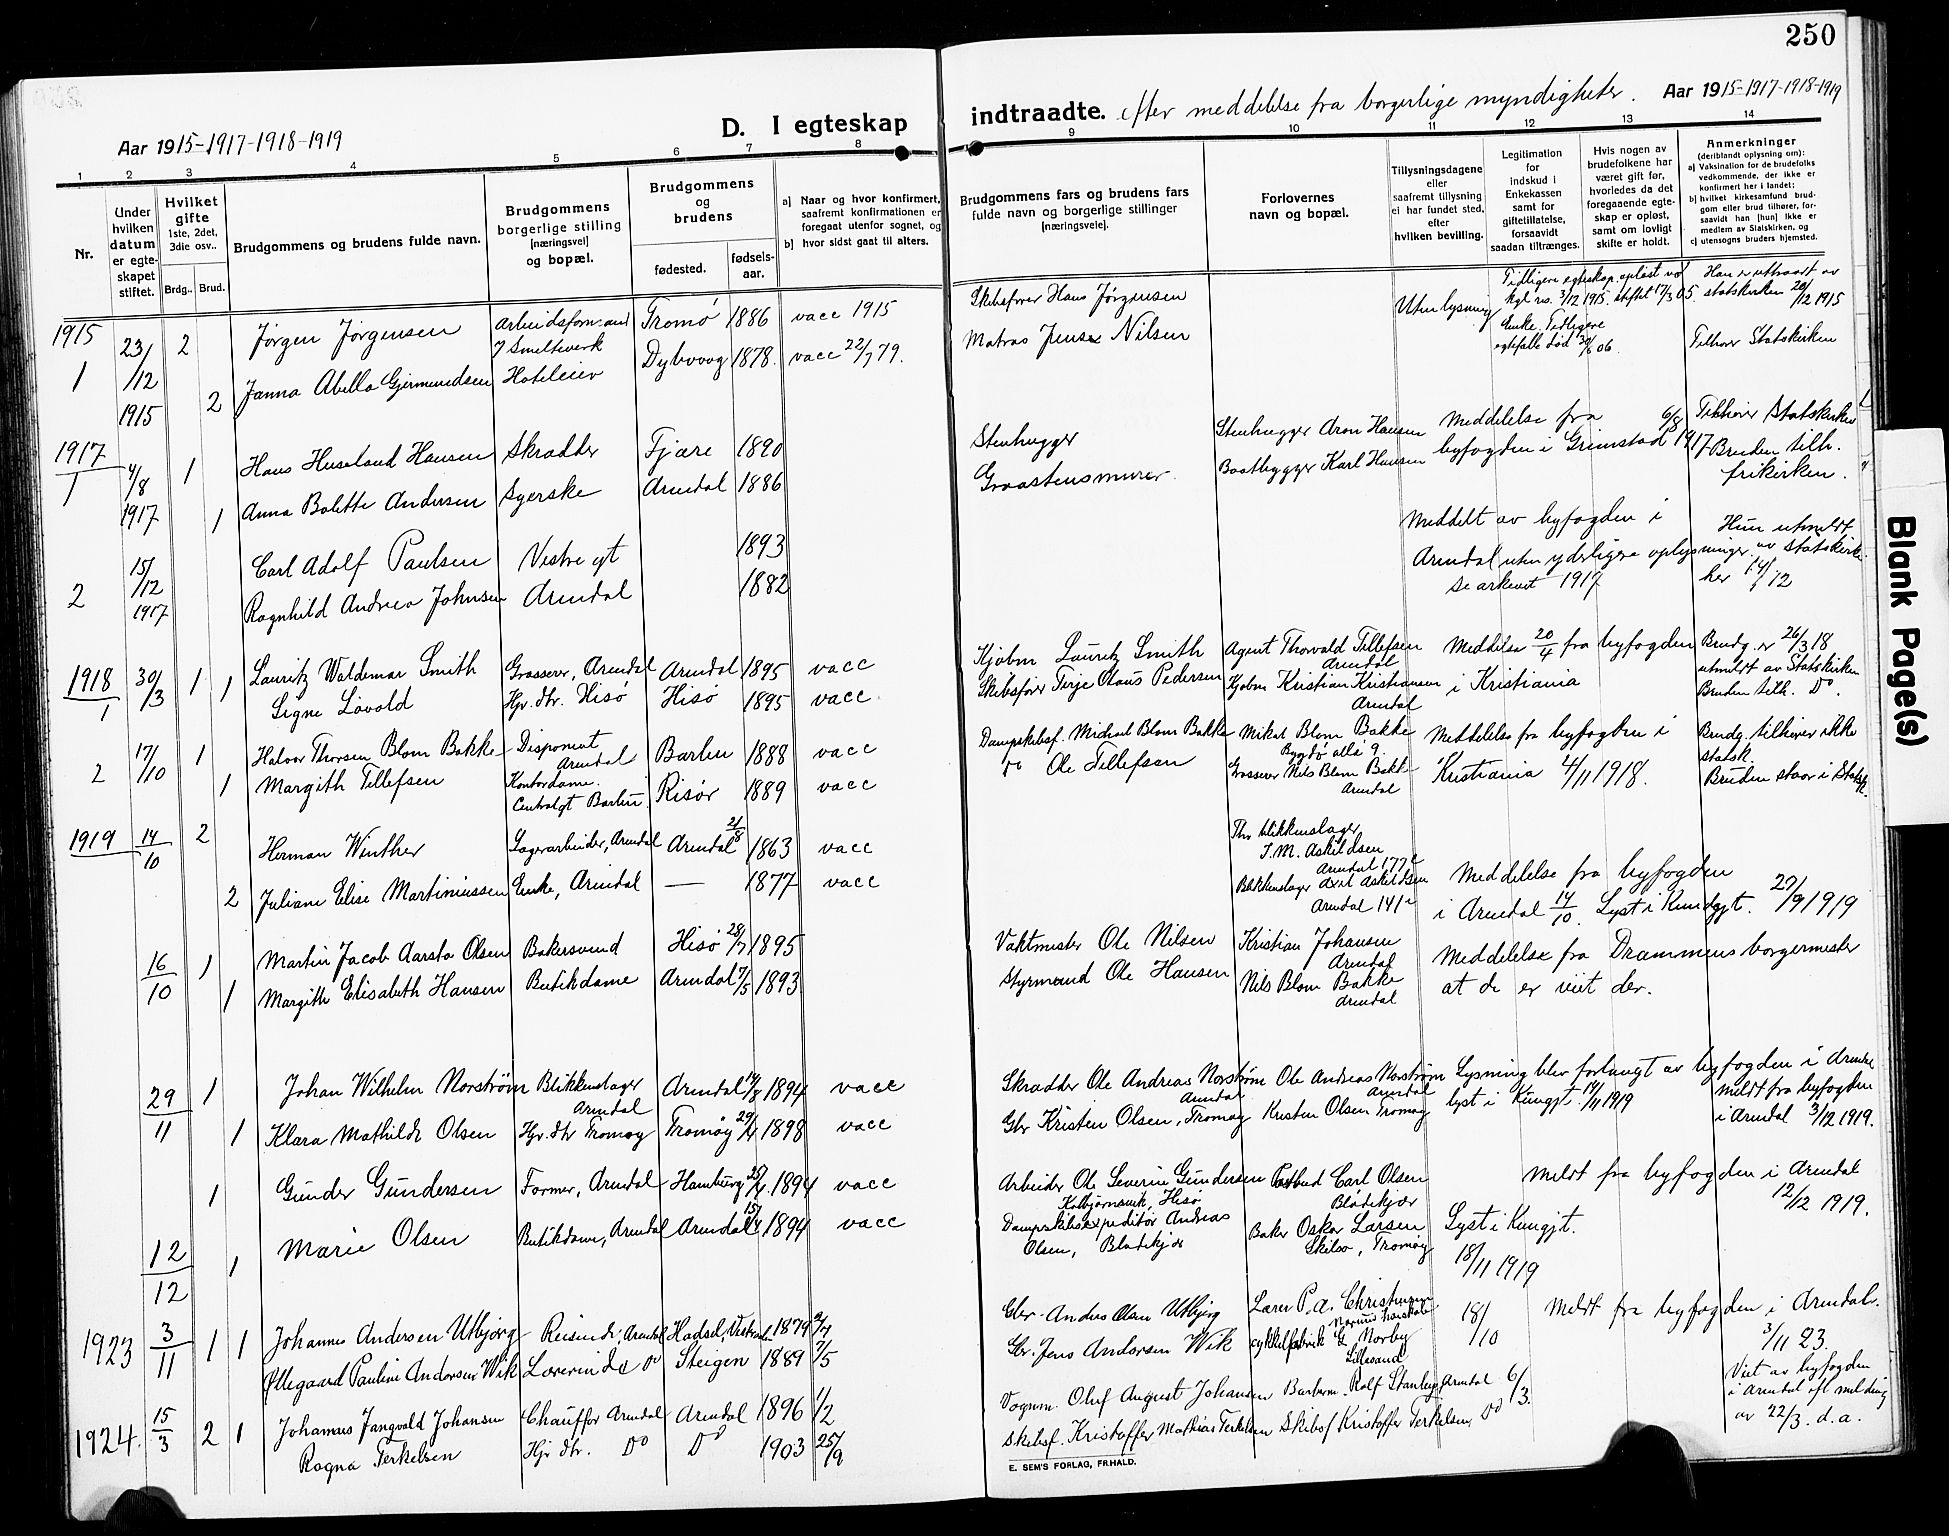 250
Aar 1915-1917-1918-1919
D. I egteskap
indtraadte. efter meddelelse fra borgerlige myndigheter.
Aar 1915-1917-1918-1919
1 2 3 4 5 6 7 8
9 10 11 12 13 14
Nr.
Under hvilken datum er egteskapet stiftet.
Hvilket gifte 1ste, 2det, 3die osv..
Brdg.. Brud.
Brudgommens og brudens fulde navn.
Brudgommens borgerlige stilling (næringsvei) og bopæl.
Brudgommens og brudens
fødested. fødsels-aar.
a) Naar og hvor konfirmert, saafremt konfirmationen er foregaat utenfor sognet, og
b) hvor sidst gaat til alters.
Brudgommens fars og brudens fars fulde navn og borgerlige stillinger (næringsveie).
Forlovernes navn og bopæl.
Tillysningsdagene eller saafremt tillysning ei har fundet sted, efter hvilken bevilling.
Legitimation for indskud i Enkekassen samt for giftetillatelse, forsaavidt saadan tiltrænges.
Hvis nogen av brudefolkene har været gift før, hvorledes da det foregaaende egteskap er opløst, samt om lovligt skifte er holdt.
Anmerkninger (deriblandt oplysning om):
a) Vaksination for de brudefolks vedkommende, der ikke er konfirmert her i landet;
b) hvilket kirkesamfund brudgom eller brud tilhører, forsaavidt han [hun] ikke er medlem av Statskirken, og
c) utensogns bruders hjemsted.
1915
1 23/12 1915 2 Jørgen Jørgensen Arbeidsformand Smelteverk Tromø 1886 vacc 1915
2 Janna Abella Gjermundsen Hoteleier Dybvaag 1878. vacc 22/7 79.
Skibsfører Hans Jørgensen Uten lysning Tidligere egteskap opløst ved kgl. res. 3/12 1915. skiftet 17/3 05 Han er uttraadt av statskirken 20/12 1915
Matros Jens Nilsen Enke. Tidligere egtefælle død 06. Tilhører Statskirken
1917
1 4/8 1917 1 Hans Huseland Hansen Skrædder Fjære 1890
1 Anna Bolette Andersen Syerske Arendal 1886
Stenhugger Stenhugger Aron Hansen Meddelelse fra byfogden i Grimstad 6/8 1917 Tilhører Statskirken
Graastensmurer. Baatbygger Karl Hansen Bruden tilh. frikirken.
2 15/12 1917 Carl Adolf Paulsen Vestre gt 1893
Ragnhild Andrea Johnsen Arendal 1882
Meddelt av byfogden i Arendal uten yderligere oplysninger. Se arkivet 1917
Hun utmeldt av statskirken her
1918
1 30/3 1 Lauritz Waldemar Smith Grosserer, Arendal Arendal 1895 vacc
1 Signe Løvold Hjv. dtr. Hisø Hisø 1895 vacc
Kjøbm Lauritz Smith Agent Thorvald Tellefsen Arendal Meddelse 20/4 fra byfogden i Kristiania Brudg. er 26/3 18 utmeldt av Statskirken
Skibsfører Terje Olaus Pedersen Kjøbm Kristian Kristiansen Arendal Bruden tilh. Do.
2 17/10 1 Halvor Thorsen Blom Bakke Disponent Arendal Barbu 1888 vacc
1 Margith Tellefsen Kontordame. Centralgt Barbu Risør 1889 vacc
Dampskibsf. Michael Blom Bakke Mikal Blom Bakke Bygdø alle 9. Meddelelse fra byfogden i Kristiania 4/11 1918. Brudg. tilhører ikke statsk.
Do Ole Tellefsen Grosserer Nils Blom Bakke Arendal Bruden staar i Statsk.
1919
14/10 2 Herman Winther Lagerarbeider, Arendal Arendal 21/8 1863 vacc
2 Juliane Elise Martiniussen Enke, Arendal — 1877 vacc
Thv blikkenslager I. M. Askildsen Arendal
Blikkenslager Axel Askildsen Arendal
Meddelelse fra byfogden i Arendal 14/10. Lyst i Kundgjt. 27/9 1919
16/10 1 Martin Jacob Aarsta Olsen Bakersvend Hisø 28/7 1895
1 Margith Elisabeth Hansen Butikdame Arendal 7/5 1893
Vaktmester Ole Nilsen Kristian Johansen Arendal Meddelelse fra Drammens borgermester at de er viet der.
Styrmand Ole Hansen Nils Blom Bakke Arendal
29/11 1 Johan Wilhelm Norstrøm Blikkenslager Arendal Arendal 1894 vacc
1 Klara Mathilde Olsen Hjv. dtr Tromøy Tromøy 29/4 1898 vacc
Skrædder Ole Andreas Norstrøm Arendal Ole Andreas Norstrøm Arendal Lysning blev forlangt av byfogden i Arendal
Gbr Kristen Olsen, Tromøy Kristen Olsen Tromøy lyst i Kungjt. 14/11 1919 meldt fra byfogden i Arendal 3/12 1919.
12/12 1 Gunder Gundersen Former, Arendal Hamburg 1894 vacc
1 Marie Olsen Butikdame, Arendal Arendal 1894 vacc
Arbeider Ole Severin Gundersen Kolbjørnsvik, Hisø Postbud Carl Olsen Blødekjær meldt fra byfogden i Arendal 12/12 1919.
Dampskibsexpeditør Andreas Olsen, Blødekjær Baker Oskar Larsen Skilsø, Tromøy Lyst i Kungjt. 18/11 1919
1923 3/11 1 1 Johannes Andersen Utbjørg Reisende, Arendal Hadsel, 1879
Øllegaard Pauline Andersen Wik Lærerinde Do Steigen 1889 7/5
Gbr. Andreas Olsen Utbjørg Lærer P. A. Christensen 18/10 meldt fra byfogden i Arendal. 3/11 23.
Gbr. Jens Andersen Wik cykkelfabrik G. Norby Lillesand
1924. 15/3 2 1 Johannes Jangvald Johansen Chauffør Arendal Arendal 1896 1/2
Ragna Terkelsen Hjv dtr. Do Do 1903 25/9
Vognm. Oluf August Johansen Barberm. Rolf Stanley, Arendal 6/3. Viet av byfogden i Arendal efl melding av 22/3. d.a.
Skibsf. Kristoffer Mathias Terkelsen Skibsf Kristoffer Terkelsen, Do
E. SEM'S FORLAG, FR.HALD.
Blank Page(s)